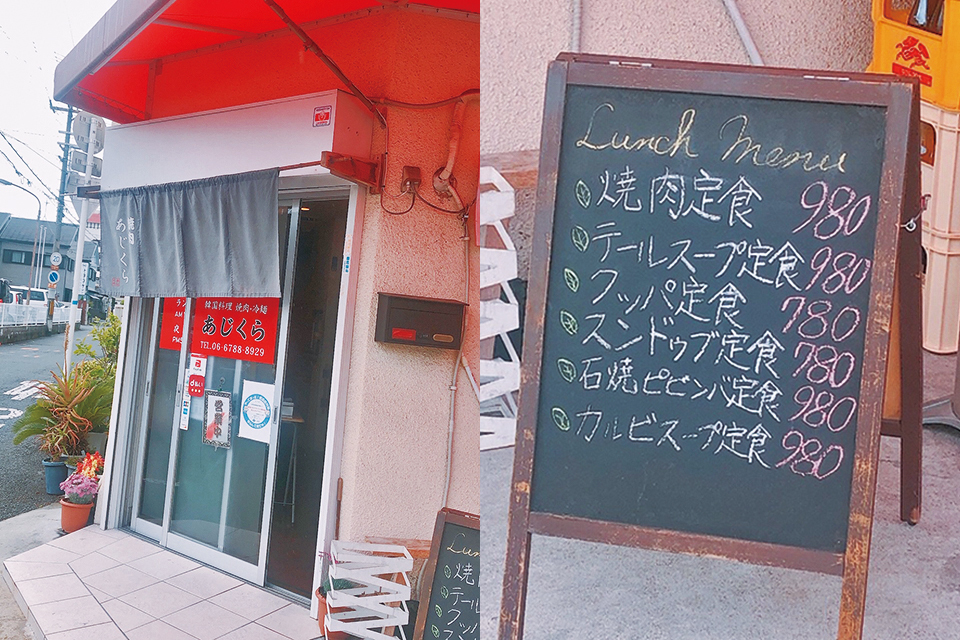 焼肉
あじくら
韓国料理 焼肉・冷麺
あじくら
TEL.06-6788-8929
営業中
20
Lunch Menu
焼肉定食 980
テールスープ定食 980
クッパ定食 780
スンドゥブ定食 780
石焼ピビンバ定食 980
カルビスープ定食 980